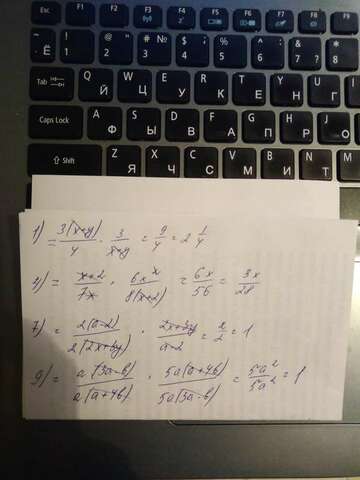 Esc F1 F2 F3 F4 F5 F6 F7 F8 F9
~ Ё ! 1 @ 2 " # 3 № $ 4 ; % 5 ^ 6 : & 7 ? * 8 (
Tab Q Й W Ц E У R К T Е Y Н U Г
Caps Lock A Ф S Ы D В F А G П H Р J О
Shift Z Я X Ч C С V М B И N Т
1) = 3(x+y)/4 · 3/x+y = 9/4 = 2 1/4
= x+2/7x · 6x^x/8(x+2) = 6x/56 = 3x/28
7) = 2(a-2)/2(2x+3y) · 2x+3y/a-2 = 2/2 = 1
9) = a(3a-b)/a(a+4b) · 5a(a+4b)/5a(3a-b) = 5a²/5a² = 1